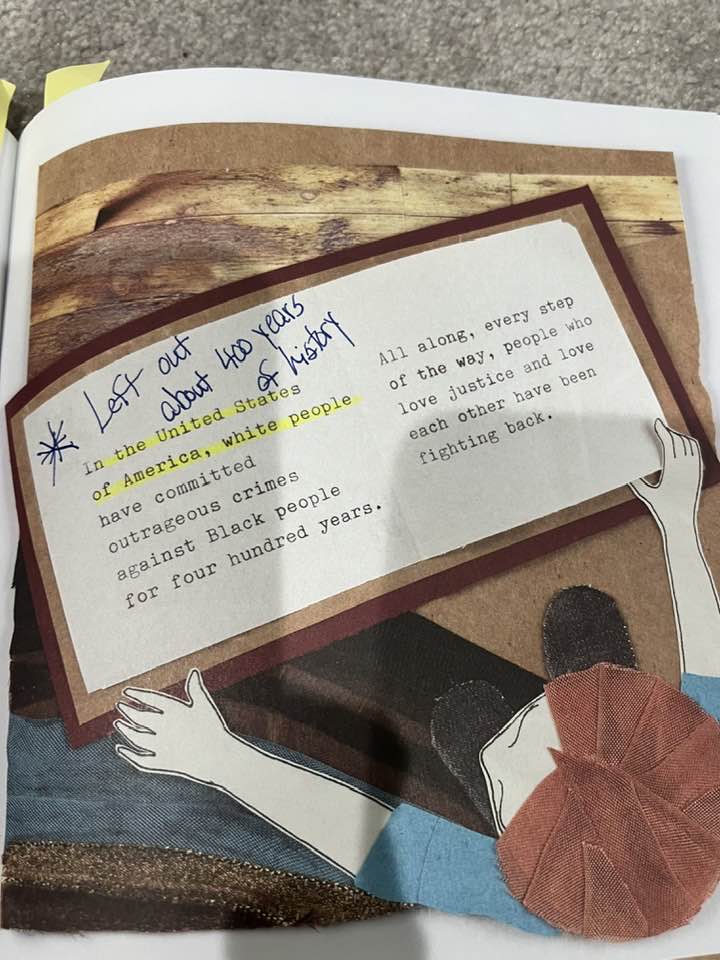 * Left out
about 400 years
of history
In the United States
of America, white people
have committed
outrageous crimes
against Black people
for four hundred years.
All along, every step
of the way, people who
love justice and love
each other have been
fighting back.